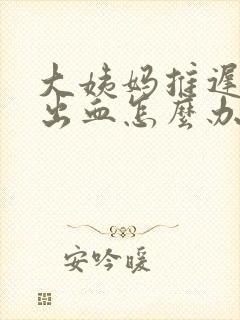 大姨妈推迟
出血怎麽办
安吟暖